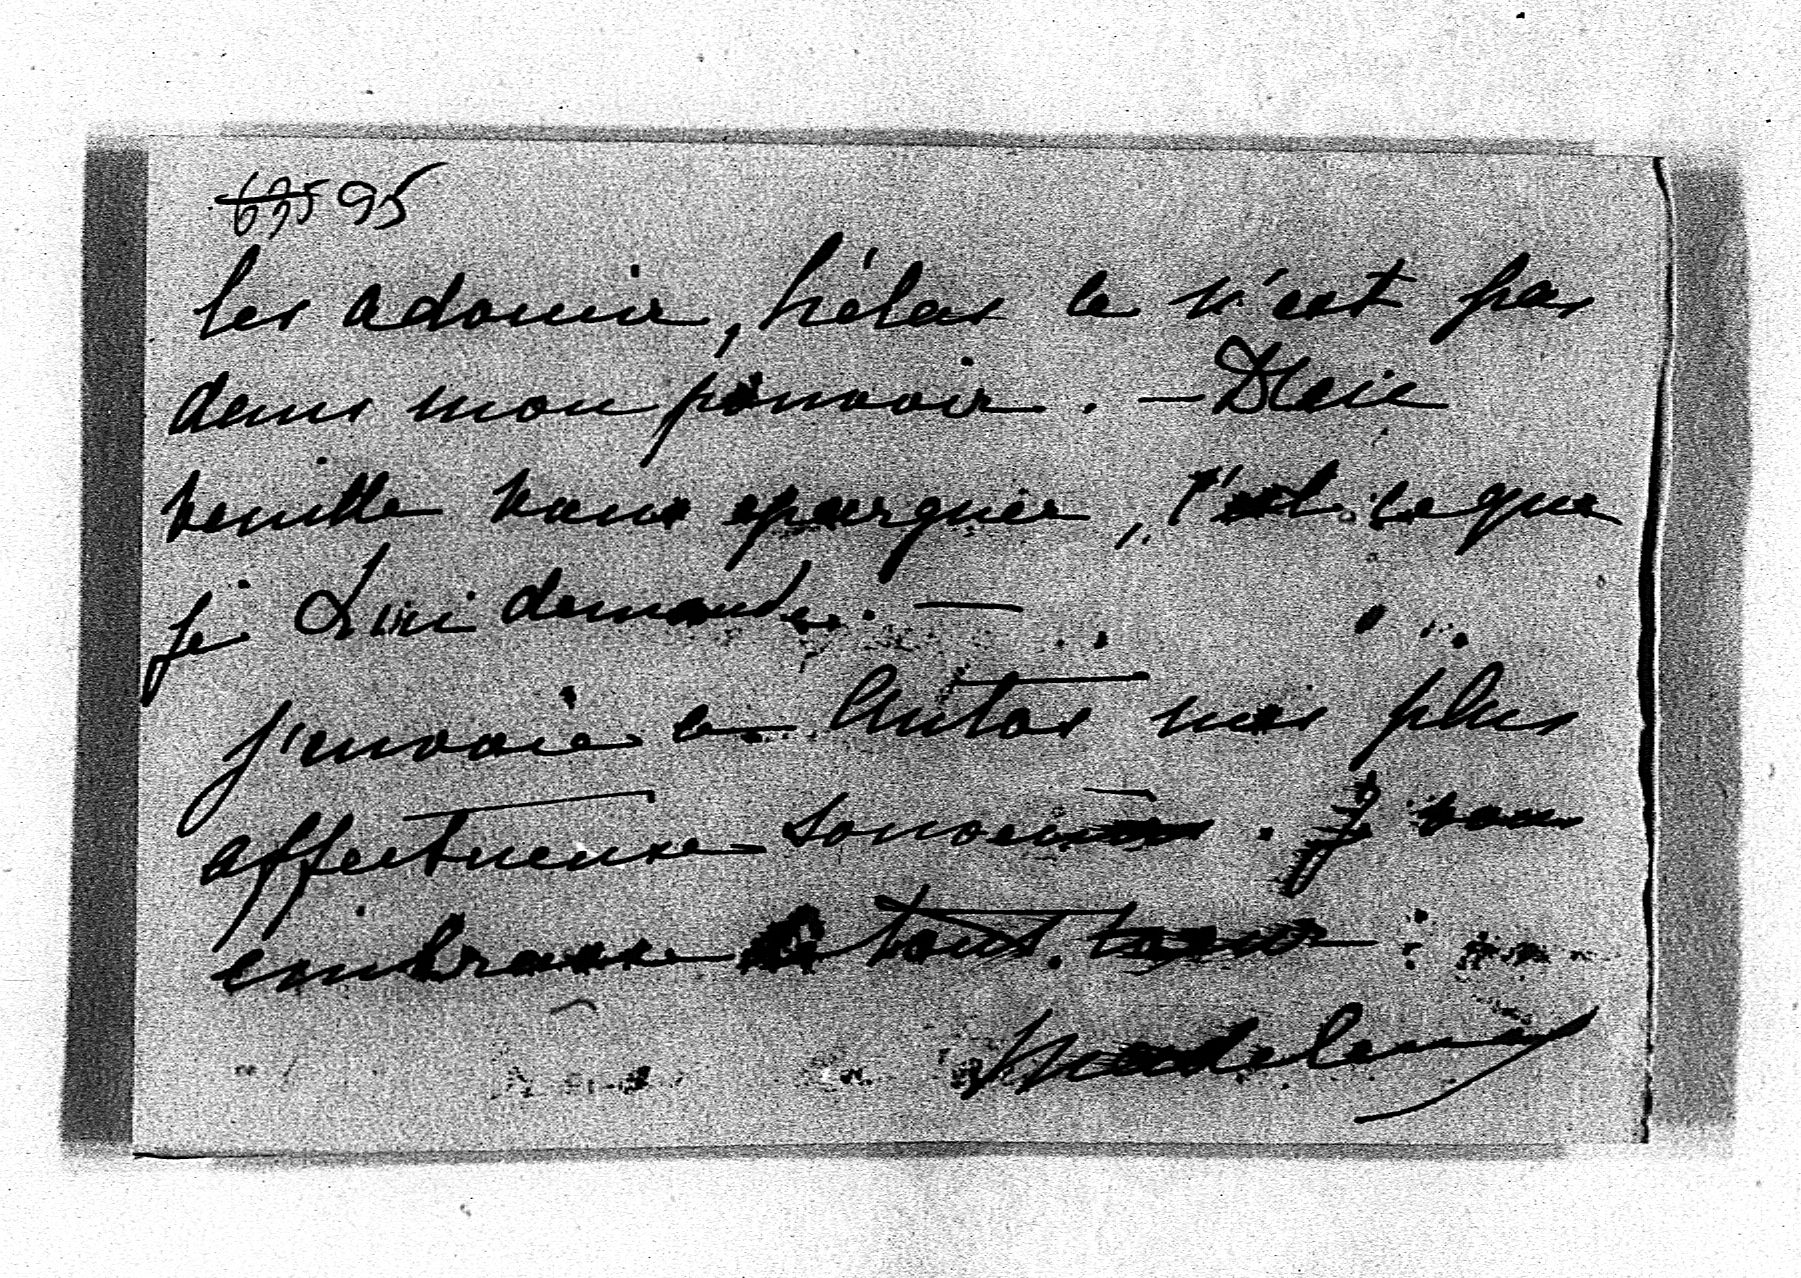 ~~635~~ 95
les adoucir, hélas ce n'est pas
dans mon pouvoir. — Dieu
veuille vous épargner, c'est ce que
je Lui demande. —
J'envoie à Antos mes plus
affectueuse souvenirs. Je vous
embrasse tous.
Madelena